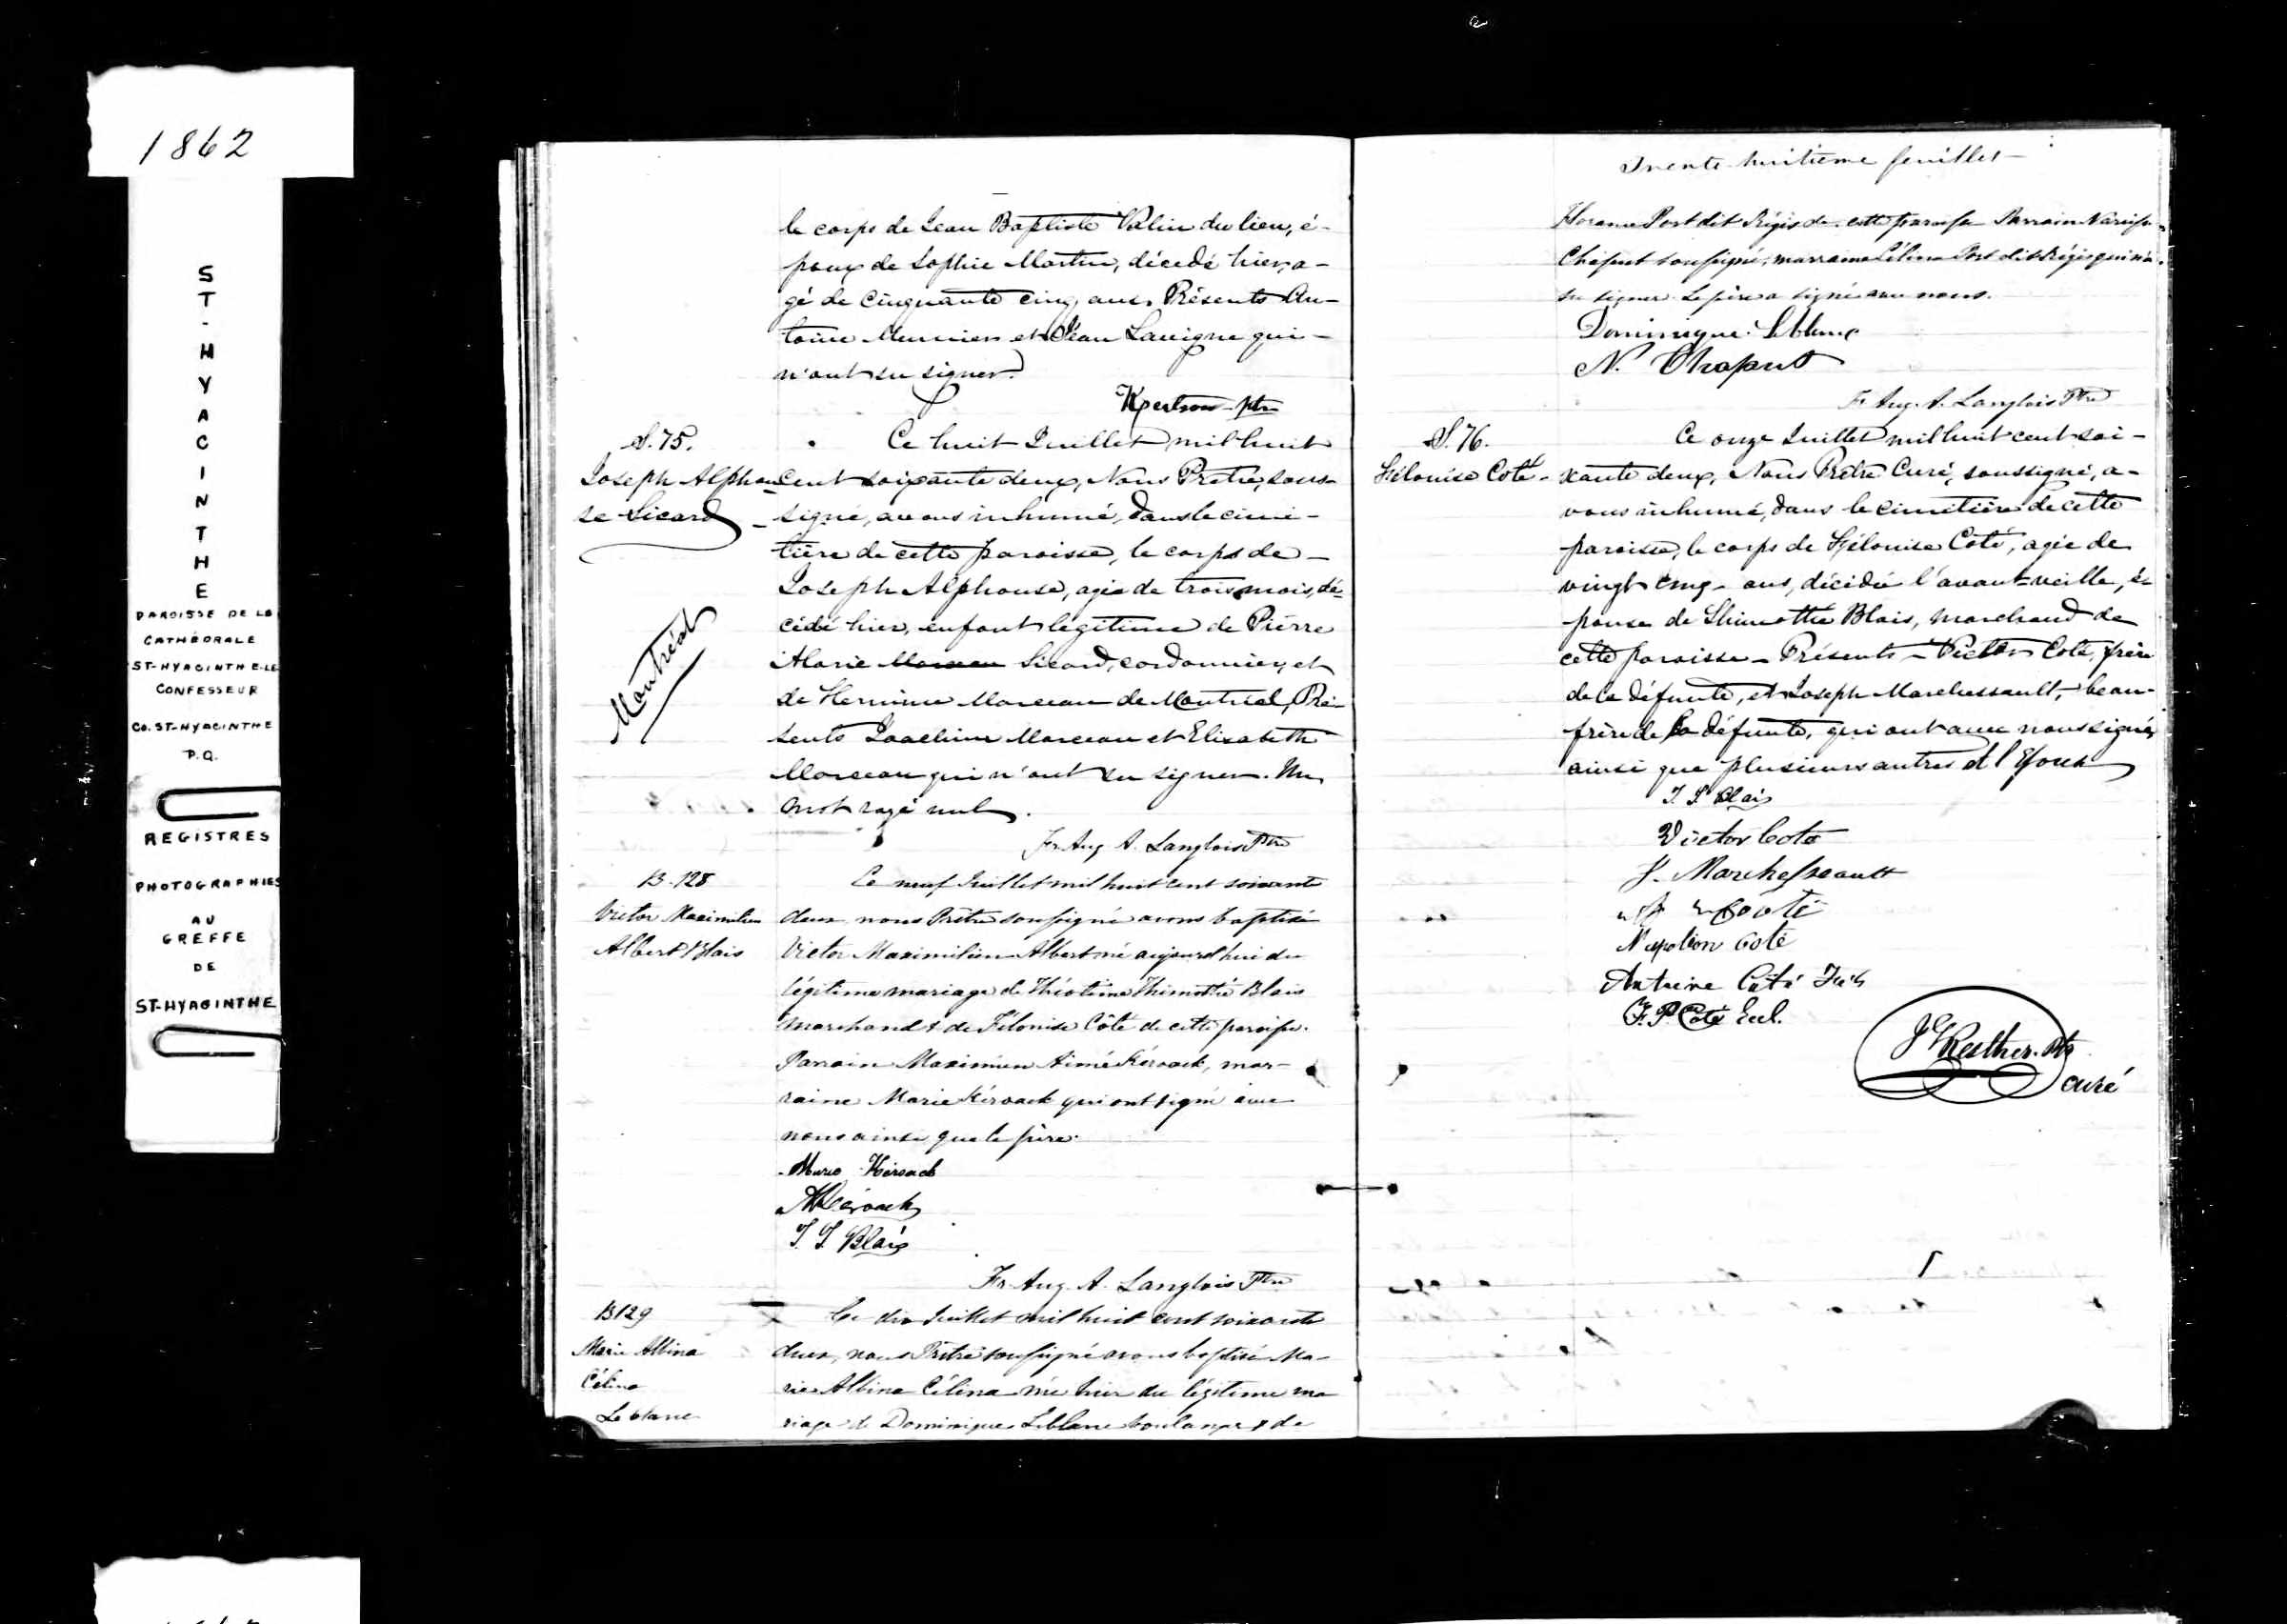 1862
ST-HYACINTHE
PAROISSE DE LA
CATHÉDRALE
ST-HYACINTHE-LE
CONFESSEUR
CO. ST-HYACINTHE
P.Q.
REGISTRES
PHOTOGRAPHIES
AU
GREFFE
DE
ST-HYACINTHE
le corps de Jean Baptiste Valin du lieu, é-
poux de Sophie Martin, décédé hier, a-
gé de cinquante cinq ans. Présents An-
toine Meunier et Jean Lavigne qui
n'ont su signer.
ptre
S. 75.
Joseph Alphon-
se Sicard
Montréal
Ce huit Juillet mil huit
cent soixante deux, Nous Prêtre, sous-
signé, avons inhumé, dans le cime-
tière de cette paroisse, le corps de
Joseph Alphonse, agé de trois mois, dé-
cédé hier, enfant légitime de Pierre
Marie Sicard, cordonnier, et
de Hermine Marceau de Montréal, Pré-
sents Joachim Marceau et Elizabeth
Marceau qui n'ont su signer. Un
mot rayé nul.
Fr. Aug. A. Langlois Ptre
B. 128
Victor Maximilien
Albert Blais
Le neuf Juillet mil huit cent soixante
deux nous Prêtre soussigné avons baptisé
Victor Maximilien Albert né aujourd'hui du
légitime mariage de Théotime Thimothé Blais
marchand & de Félonise Côté de cette paroisse.
Parrain Maximien Aimé Kéroack, mar-
raine Marie Kéroack qui ont signé avec
nous ainsi que le père.
Marie Kéroack
MA Kéroack
T. T. Blais
Fr. Aug. A. Langlois Ptre
B129
Marie Albina
Célina
Leblanc
Le dix Juillet mil huit cent soixante
deux, nous Prêtre soussigné avons baptisé Ma-
rie Albina Célina née hier du légitime ma
riage de Dominique Leblanc boulanger & de
Trente-huitième feuillet
Port dit Régis de cette paroisse Parrain Narcisse
Chaput soussigné, marraine Célina Port dit Régis qui n'a
su signer. Le père a signé avec nous.
Dominique Leblanc
N. Chaput
Fr Aug. A. Langlois Ptre
S. 76.
Hélouise Coté
Ce onze Juillet mil huit cent soi-
xante deux, Nous Prêtre Curé, soussigné, a-
vons inhumé, dans le cimetière de cette
paroisse, le corps de Hélouise Coté, agée de
vingt cinq ans, décédée l'avant-veille, é-
pouse de Thimothé Blais, marchand de
cette paroisse - Présents - Victor Coté, frère
de la défunte, et Joseph Marchessault, beau-
frère de la défunte, qui ont avec nous signé,
ainsi que plusieurs autres et l'Epoux
T. T. Blais
Victor Coté
J. Marchesseault
Coté
Napoléon Coté
Antoine Côté
F. P. Coté Eccl.
Ptre
curé